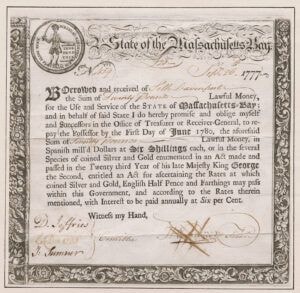 State of the Massachusetts-Bay
1777
BOrrowed and received of
the Sum of Twenty pounds Lawful Money,
for the Use and Service of the STATE of Massachusetts-Bay;
and in behalf of said State I do hereby promise and oblige myself
and Successors in the Office of Treasurer or Receiver-General, to re-
pay the Possessor by the First Day of JUNE 1780, the aforesaid
Sum of Twenty pounds Lawful Money, in
Spanish mill'd Dollars at Six Shillings each, or in the several
Species of coined Silver and Gold enumerated in an Act made and
passed in the Twenty third Year of his late Majesty King George
the Second, entitled an Act for ascertaining the Rates at which
coined Silver and Gold, English Half Pence and Farthings may pass
within this Government, and according to the Rates therein
mentioned, with Interest to be paid annually at Six per Cent.
Witness my Hand,
D. Jeffries
Committee
J. Sumner